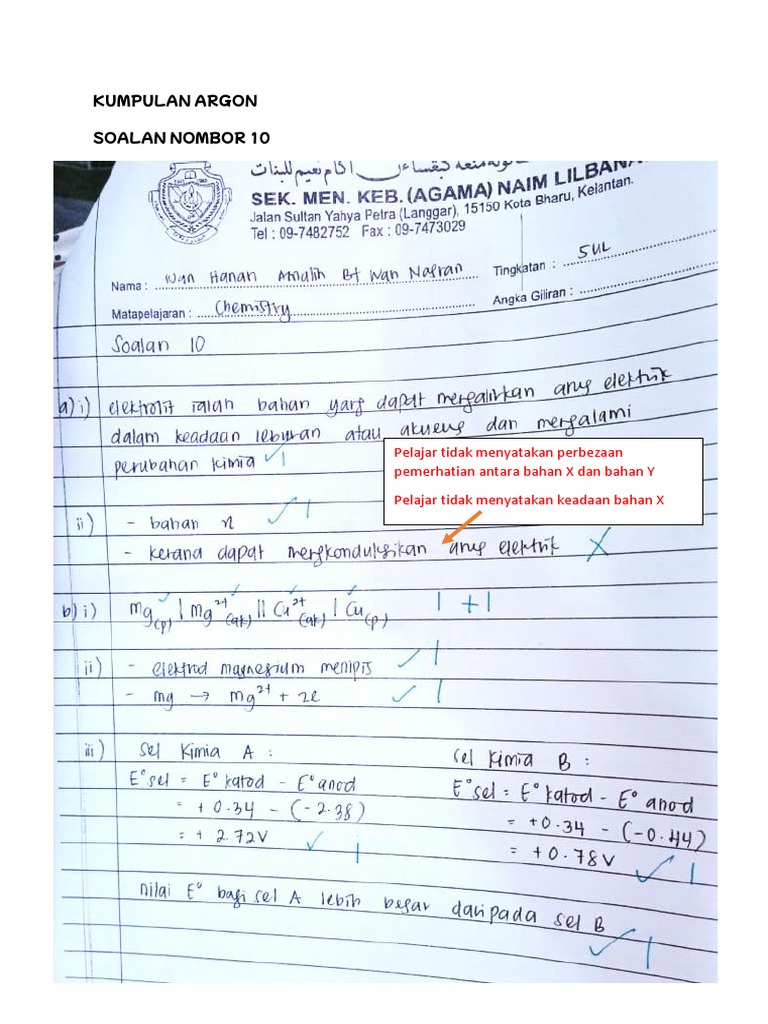 KUMPULAN ARGON
SOALAN NOMBOR 10
SEK. MEN. KEB. (AGAMA) NAIM LILBANA
Jalan Sultan Yahya Petra (Langgar), 15150 Kota Bharu, Kelantan.
Tel : 09-7482752 Fax : 09-7473029
Nama : Wan Hanan Amalih Bt Wan Nasran Tingkatan : 5UL
Matapelajaran : Chemistry Angka Giliran :
Soalan 10
a) i) elektrolit ialah bahan yang dapat mengalirkan arus elektrik
dalam keadaan leburan atau akueus dan mengalami
perubahan kimia ✓ 1
Pelajar tidak menyatakan perbezaan
pemerhatian antara bahan X dan bahan Y
Pelajar tidak menyatakan keadaan bahan X
ii) - bahan x ✓ 1
- kerana dapat mengkonduksikan arus elektrik X
b) i) Mg(p) | Mg²⁺(ak) || Cu²⁺(ak) | Cu(p) 1 + 1
ii) - elektrod magnesium menipis ✓ 1
- mg → mg²⁺ + 2e ✓ 1
iii) Sel Kimia A : Sel Kimia B :
E°sel = E° katod - E° anod E°sel = E° katod - E° anod
= +0.34 - (-2.38) = +0.34 - (-0.44)
= + 2.72V ✓ 1 = +0.78V ✓ 1
nilai E° bagi sel A lebih besar daripada sel B
✓ 1